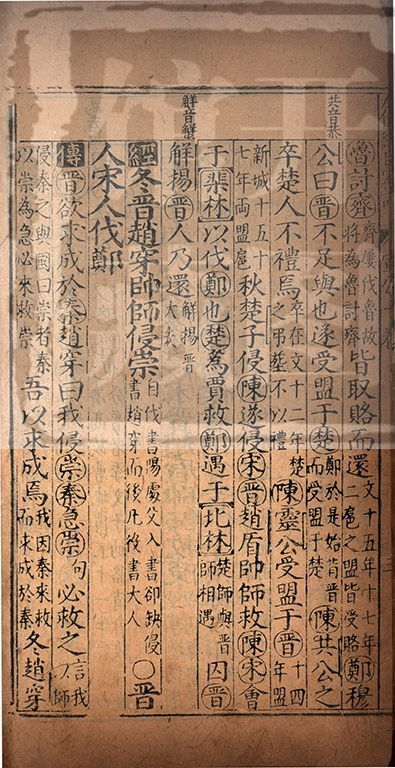 共音恭
解音蟹
魯討齊齊屢伐魯故將為魯討齊皆取賂而還文十五年十七年二扈之盟皆受賂鄭穆
公曰晉不足與也遂受盟于楚鄭於是始背晉而受盟于楚陳共公之
卒楚人不禮焉卒在文十三年楚之弔塟不以禮陳靈公受盟于晉十四年盟
新城十五十七年両盟扈秋楚子侵陳遂侵宋晉趙盾帥師救陳宋會
于棐林以伐鄭也楚蒍賈救鄭遇于北林楚師與晉師相遇囚晉
解揚晉人乃還解揚晉大夫
經冬晉趙穿帥師侵崇自伐書陽處父入書卻缺侵書趙穿而後凡役書大人○晉
人宋人伐鄭
傳晉欲求成於秦趙穿曰我侵崇秦急崇句必救之言我師
侵秦之與國曰崇者秦以崇為急必來救崇吾以求成焉我因秦來救而求成於秦冬趙穿